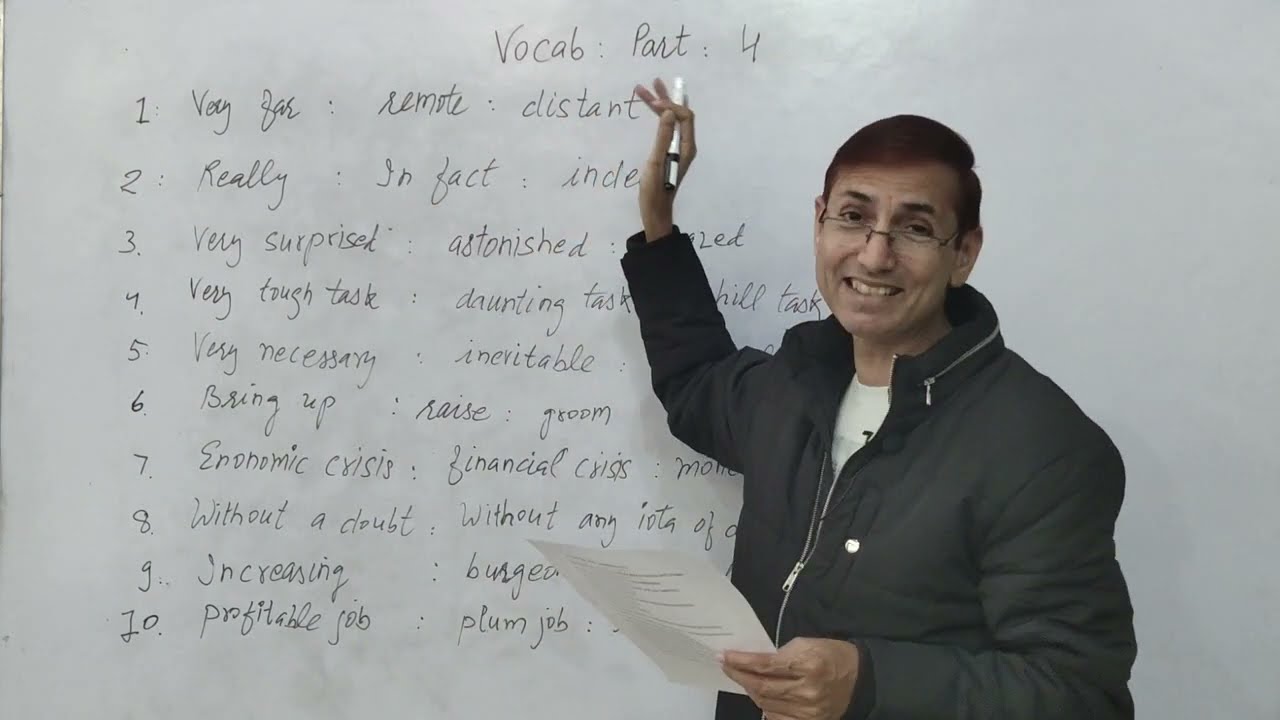 Vocab : Part : 4
1: Very far : remote : distant
2 : Really : In fact : inde
3. Very surprised : astonished : azed
4. Very tough task : daunting task hill task
5: Very necessary : inevitable :
6. Bring up : raise : groom
7. Enonomic crisis : financial crisis : mone
8. Without a doubt : Without any iota of d
9. Increasing : burgeo
10. Profitable job : plum job :